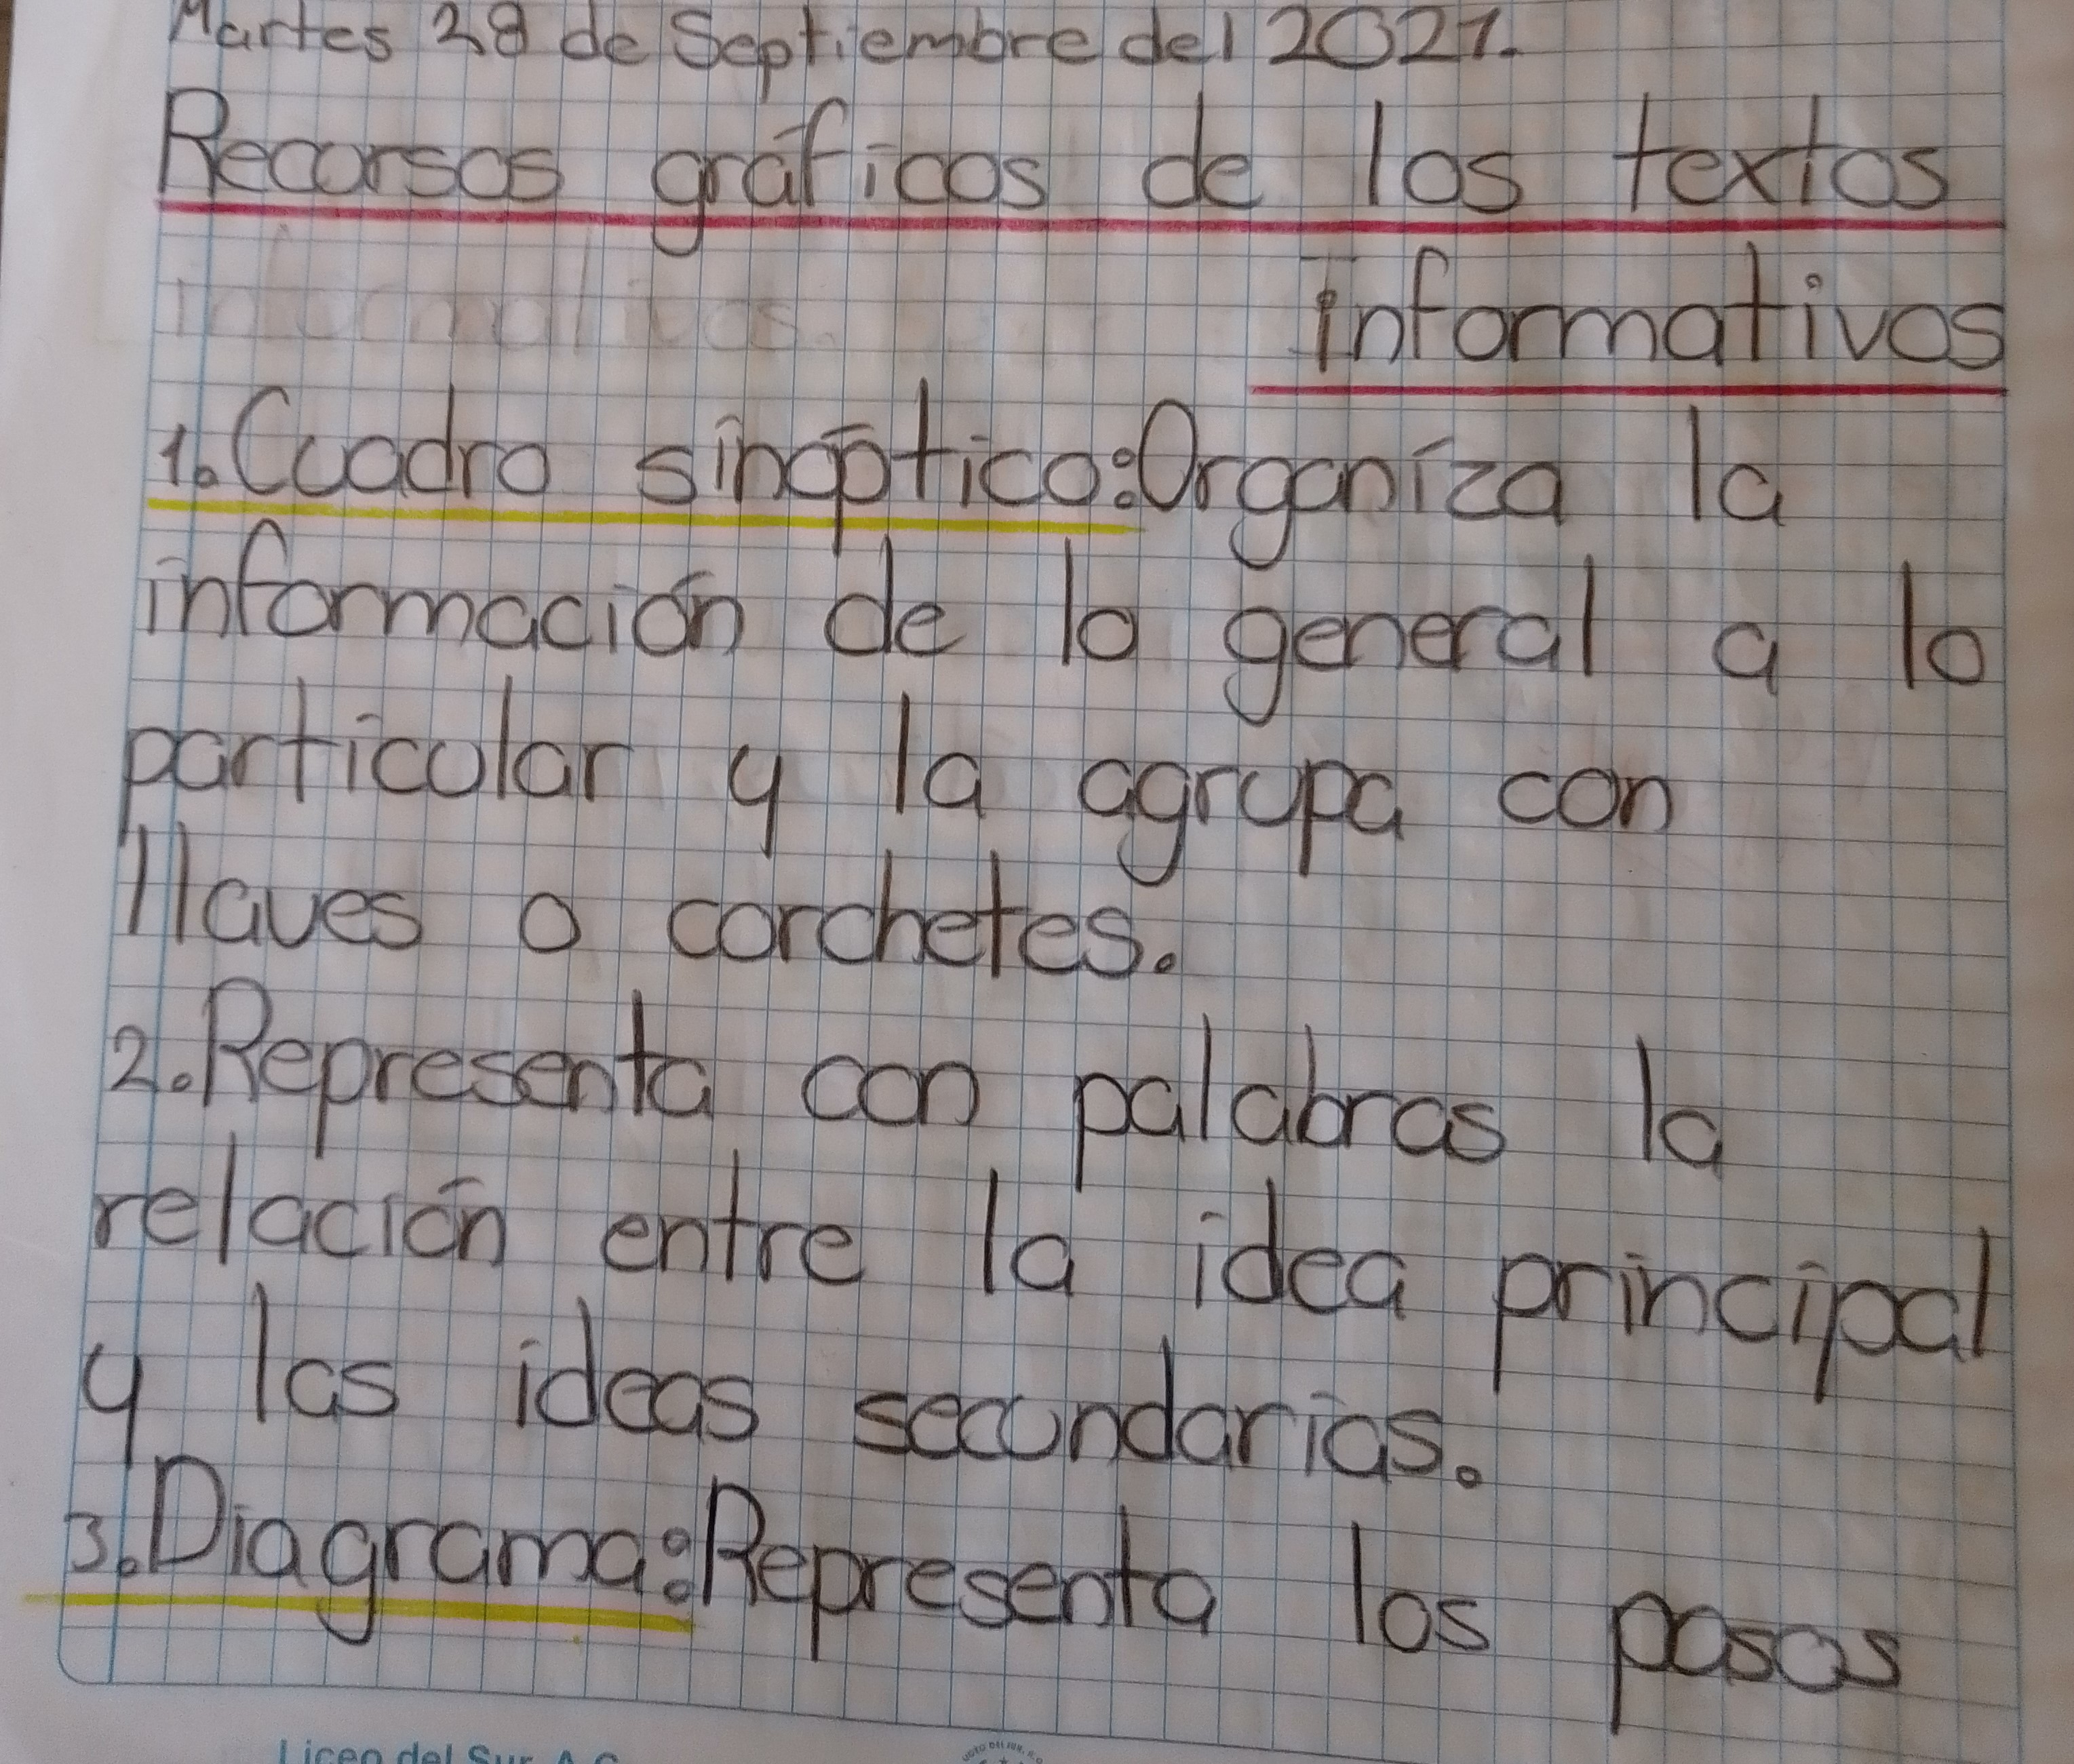 Martes 28 de Septiembre del 2021.
Recursos gráficos de los textos
informativos
informativos.
1. Cuadro sinóptico: Organiza la
información de lo general a lo
particular y la agrupa con
llaves o corchetes.
2. Representa con palabras la
relación entre la idea principal
y las ideas secundarias.
3. Diagrama: Representa los pasos
Liceo del Sur A.C.